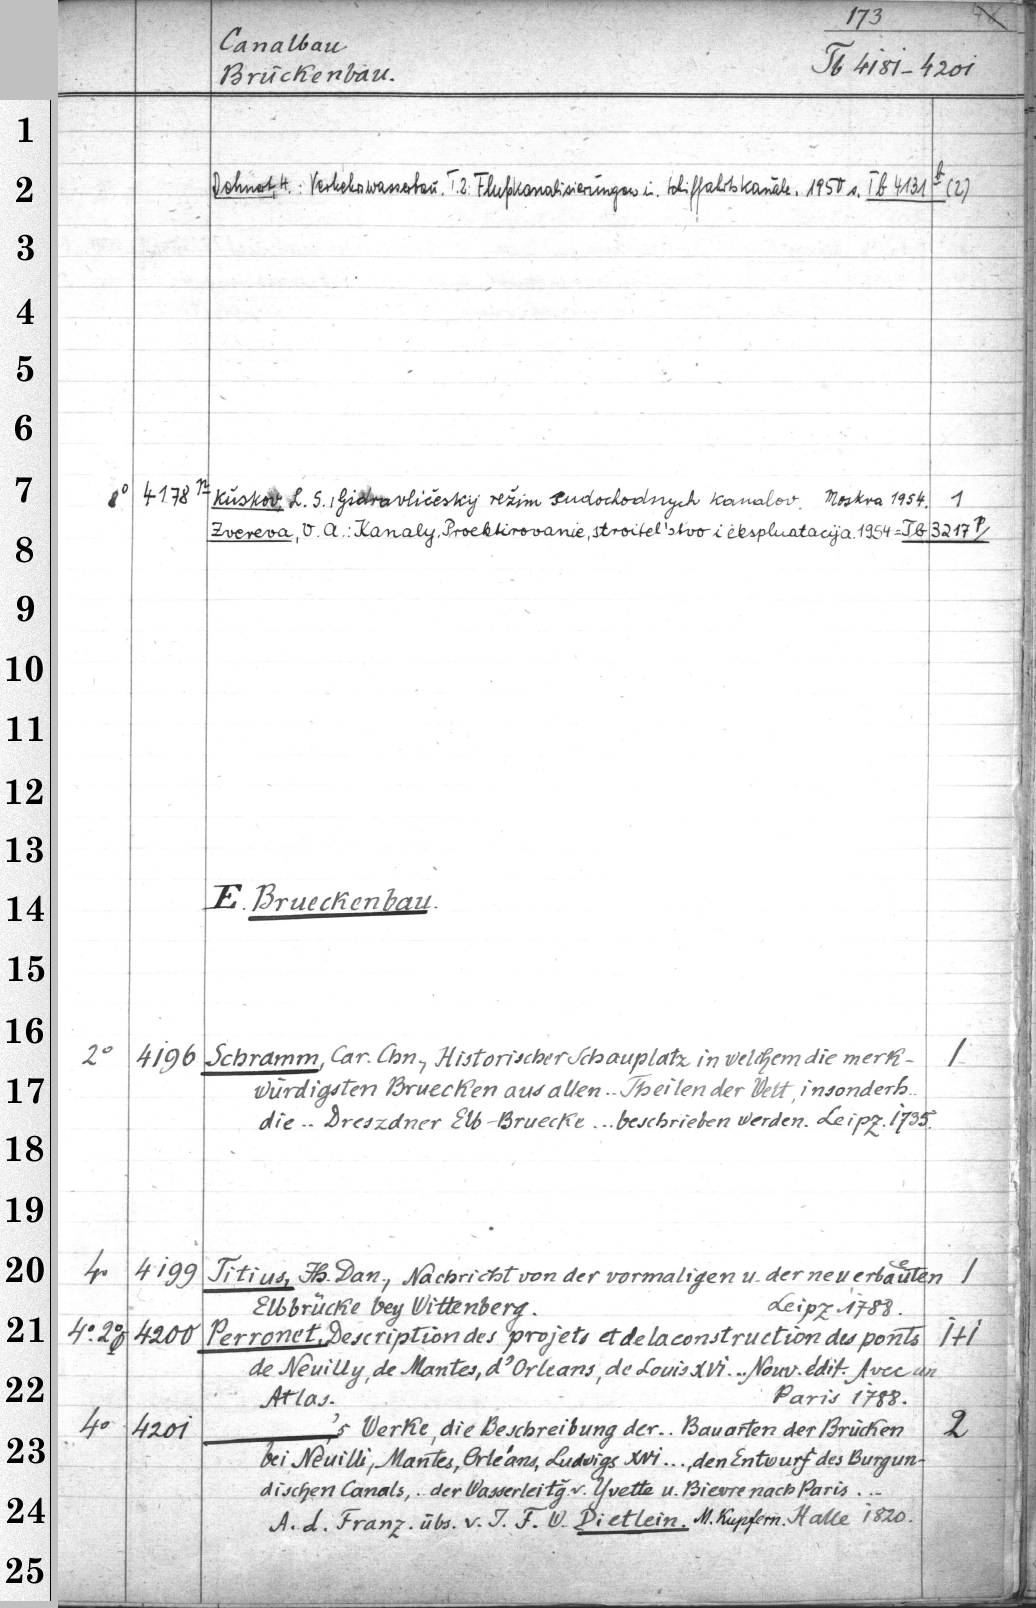 173
Canalbau
Brückenbau.
Tb 4181-4201
1
2
Dehnert, H.: Verkehrswasserbau. T.2: Flußkanalisierungen u. Schiffahrtskanäle. 1950 s. Tb 4131 b (2)
3
4
5
6
7
8° 4178 n Kuskov, L. S., Gidravličeskij režim sudochodnych kanalov. Moskva 1954. 1
8
Zvereva, V. A.: Kanaly. Proektirovanie, stroitel'stvo i ėkspluatacija. 1954 = Tb 3217 p/
9
10
11
12
13
14
E. Brueckenbau.
15
16
2° 4196 Schramm, Car. Chn., Historischer Schauplatz in welchem die merk- 1
17
würdigsten Bruecken aus allen .. Theilen der Welt, insonderh..
die .. Dreszdner Elb-Bruecke ... beschrieben werden. Leipz. 1735.
18
19
20
4° 4199 Titius, Jh. Dan., Nachricht von der vormaligen u. der neu erbaueten 1
Elbbrücke bey Wittenberg. Leipz. 1788.
21
4° 2° 4200 Perronet, Description des projets et de la construction des ponts 1+1
de Neuilly, de Mantes, d'Orleans, de Louis XVI ... Nouv. édit. Avec un
22
Atlas. Paris 1788.
4° 4201 's Werke, die Beschreibung der .. Bauarten der Brücken 2
23
bei Neuilli, Mantes, Orléans, Ludwigs XVI ..., den Entwurf des Burgun-
dischen Canals, .. der Wasserleitg v. Yvette u. Bievre nach Paris ...
24
A. d. Franz. übs. v. J. F. W. Dietlein. M. Kupfern. Halle 1820.
25